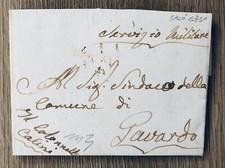 Servizio Militare
Al Sig: Sindaco della
Comune di
Gavardo
Il Colonnello